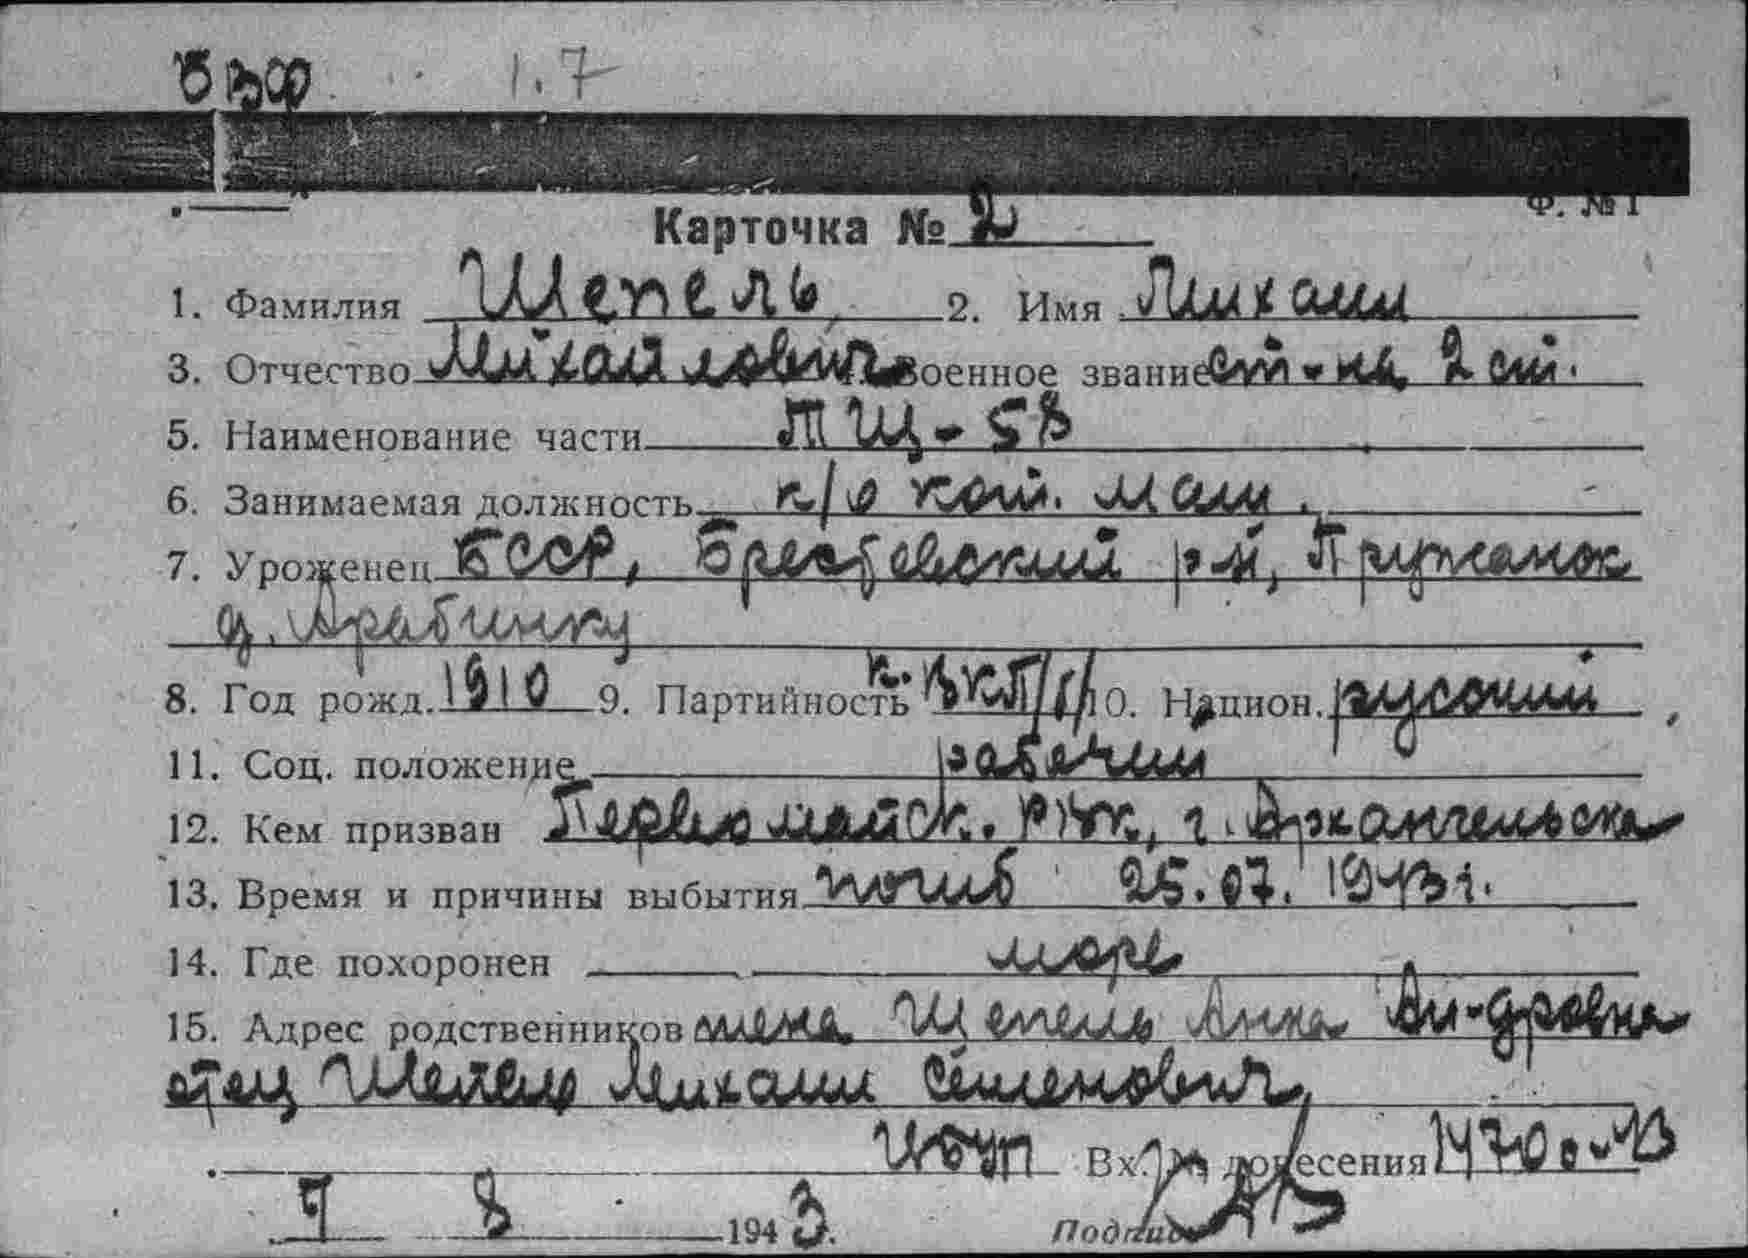 ВМФ 1.7
Ф. № 1
Карточка № 2
1. Фамилия Шепель 2. Имя Михаил
3. Отчество Михайлович Военное звание ст-на 2 ст.
5. Наименование части ТЩ-58
6. Занимаемая должность к/о кот. маш.
7. Уроженец БССР, Брестевский р-й, Пружанск
д. Арабинку
8. Год рожд. 1910 9. Партийность к. ВКП/б/ 10. Национ. русский
11. Соц. положение рабочий
12. Кем призван Первомайск. РВК, г. Архангельска
13. Время и причины выбытия погиб 25.07.1943 г.
14. Где похоронен море
15. Адрес родственников жена Шепель Анна Ал-дровна
отец Шепель Михаил Семенович
Вх. донесения 1470
8 1943.
Подпись